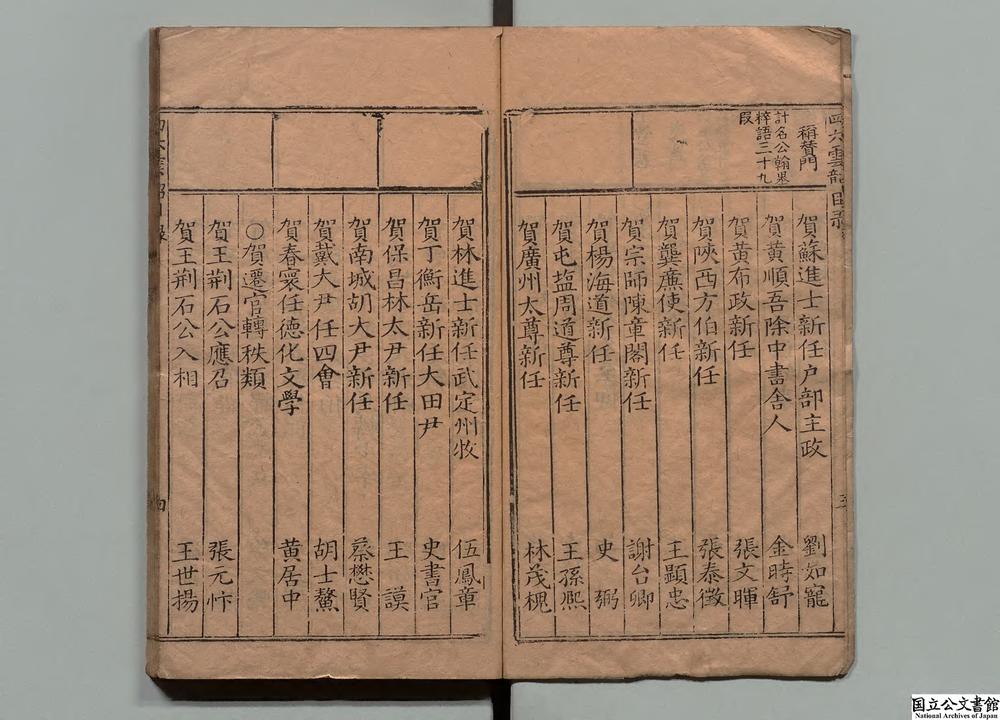 四六雲龍目錄
稱賛門
計名公翰墨
粹語三十九
段
賀蘇進士新任户部主政 劉如寵
賀黃順吾除中書舍人 金時舒
賀黃布政新任 張文暉
賀陝西方伯新任 張泰徵
賀龔廉使新任 王顯忠
賀宗師陳童閣新任 謝台卿
賀楊海道新任 史弼
賀屯盐周道尊新任 王孫熈
賀廣州太尊新任 林茂槐
賀林進士新任武定州牧 伍鳳章
賀丁衡岳新任大田尹 史書官
賀保昌林大尹新任 王謨
賀南城胡大尹新任 蔡懋賢
賀戴大尹任四會 胡士鰲
賀春寰任德化文學 黃居中
○賀遷官轉秩類
賀王荆石公應召 張元忭
賀王荆石公入相 王世揚
四
国立公文書館
National Archives of Japan